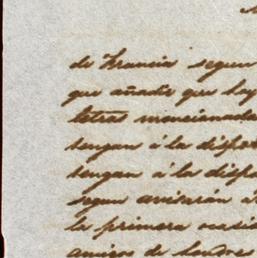 de Francia segun
que añadir que hoy
letras mencionada
tengan á la dispo
tengan á la dispo
segun avisarán á
la primera ocasi
amigos de Londres